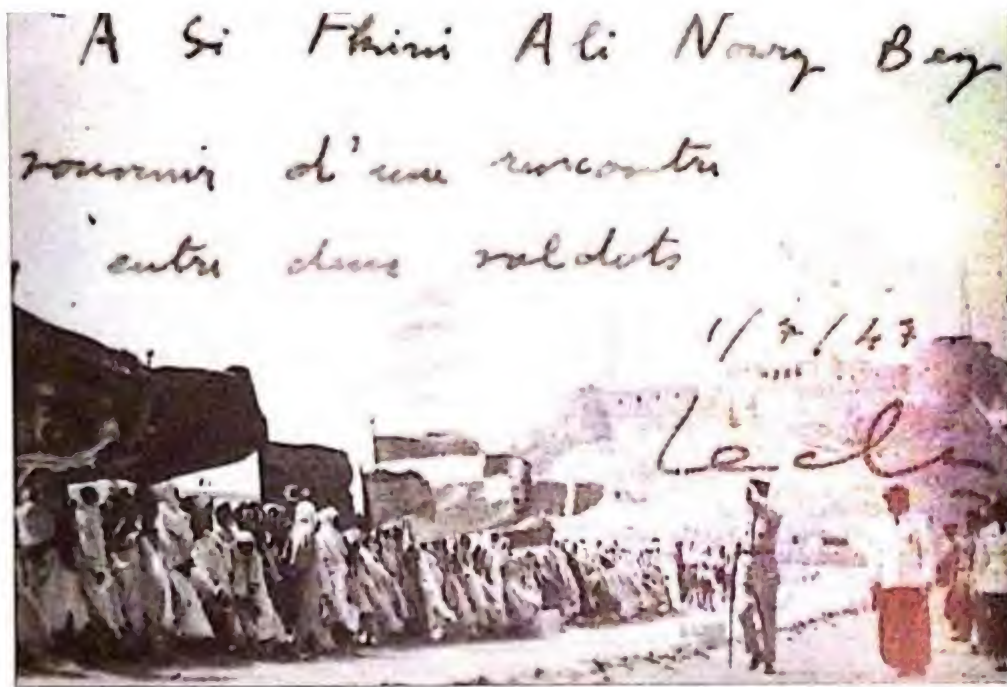 A Si Fhimi Ali Noury Bey
souvenir d'une rencontre
entre deux soldats
1/7/47
Lecle